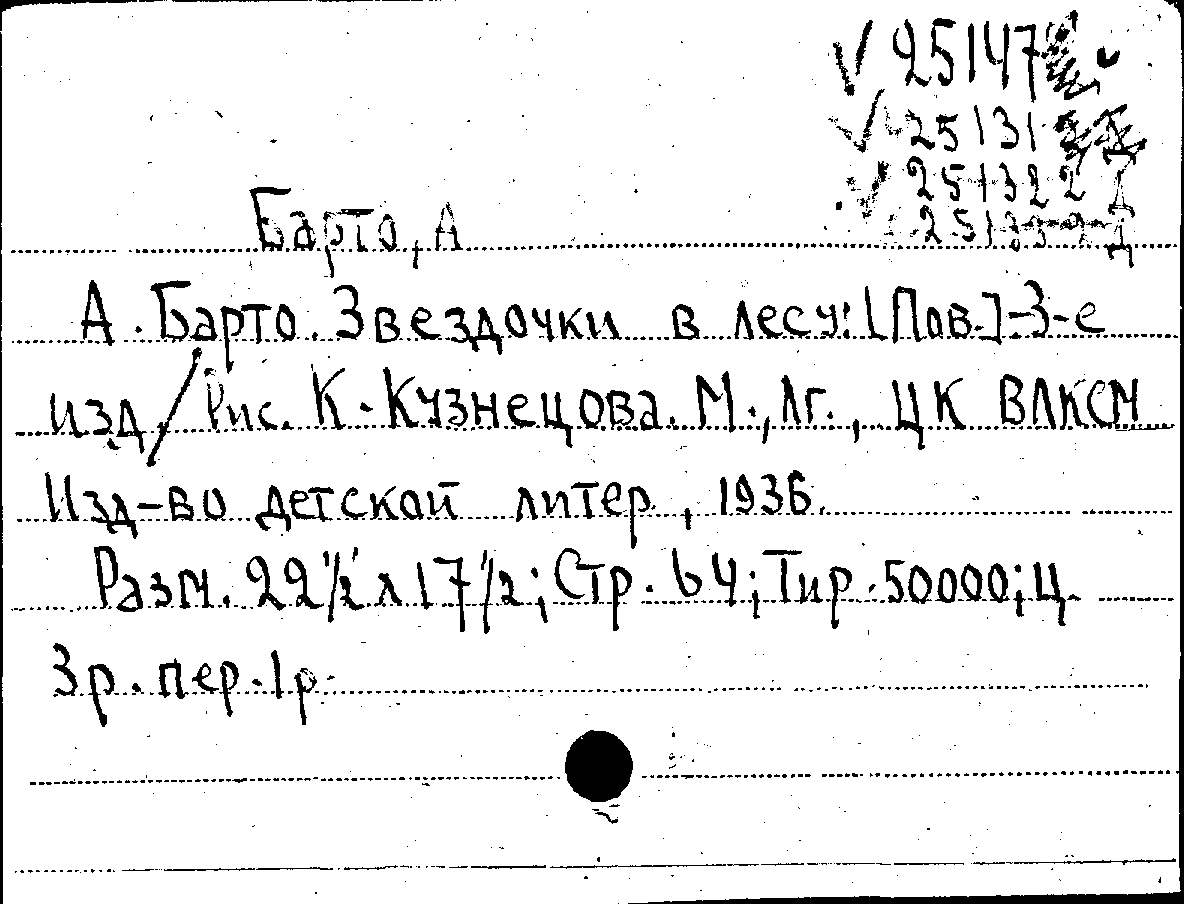 √ 25147
√ 25131
√ 251322 Д
Барто, А
А. Барто. Звездочки в лесу: [Пов.]-3-е
изд./ Рис. К. Кузнецова. М., Лг., ЦК ВЛКСМ
Изд-во детской литер, 1936.
Разм. 22 1/2 х 17 1/2; Стр. 64; Тир. 50000; ц.
3 р. пер. 1 р.